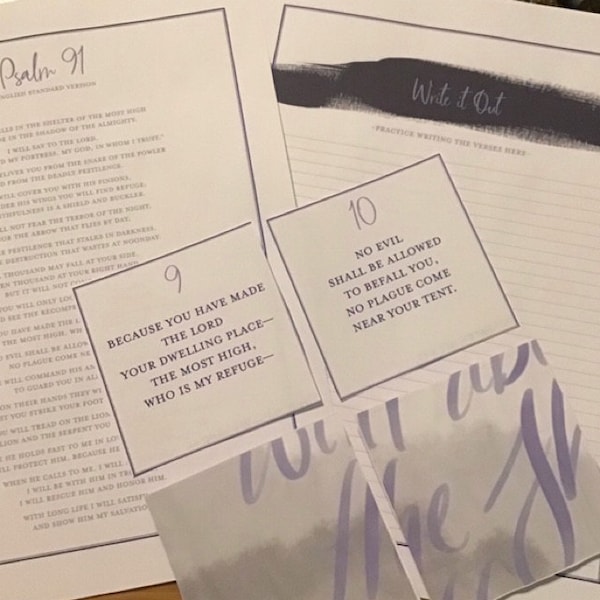 Psalm 91
ENGLISH STANDARD VERSION
LLS IN THE SHELTER OF THE MOST HIGH
E IN THE SHADOW OF THE ALMIGHTY.
I WILL SAY TO THE LORD,
D MY FORTRESS, MY GOD, IN WHOM I TRUST."
ELIVER YOU FROM THE SNARE OF THE FOWLER
D FROM THE DEADLY PESTILENCE.
WILL COVER YOU WITH HIS PINIONS,
DER HIS WINGS YOU WILL FIND REFUGE;
THFULNESS IS A SHIELD AND BUCKLER.
LL NOT FEAR THE TERROR OF THE NIGHT,
OR THE ARROW THAT FLIES BY DAY,
E PESTILENCE THAT STALKS IN DARKNESS,
E DESTRUCTION THAT WASTES AT NOONDAY.
THOUSAND MAY FALL AT YOUR SIDE,
EN THOUSAND AT YOUR RIGHT HAND
BUT IT WILL NOT CO
YOU WILL ONLY LOO
D SEE THE RECOMPE
OU HAVE MADE THE L
THE MOST HIGH, WH
O EVIL SHALL BE ALLOW
NO PLAGUE COME NE
WILL COMMAND HIS AN
TO GUARD YOU IN AL
ON THEIR HANDS THEY W
ST YOU STRIKE YOUR FOOT
YOU WILL TREAD ON THE LION
LION AND THE SERPENT YOU
E HE HOLDS FAST TO ME IN LO
LL PROTECT HIM, BECAUSE HE
WHEN HE CALLS TO ME, I WILL
I WILL BE WITH HIM IN TR
I WILL RESCUE HIM AND HONOR HIM.
WITH LONG LIFE I WILL SATISF
AND SHOW HIM MY SALVATIO
Write it Out
-PRACTICE WRITING THE VERSES HERE-
9
BECAUSE YOU HAVE MADE
THE LORD
YOUR DWELLING PLACE—
THE MOST HIGH,
WHO IS MY REFUGE—
10
NO EVIL
SHALL BE ALLOWED
TO BEFALL YOU,
NO PLAGUE COME
NEAR YOUR TENT.
the